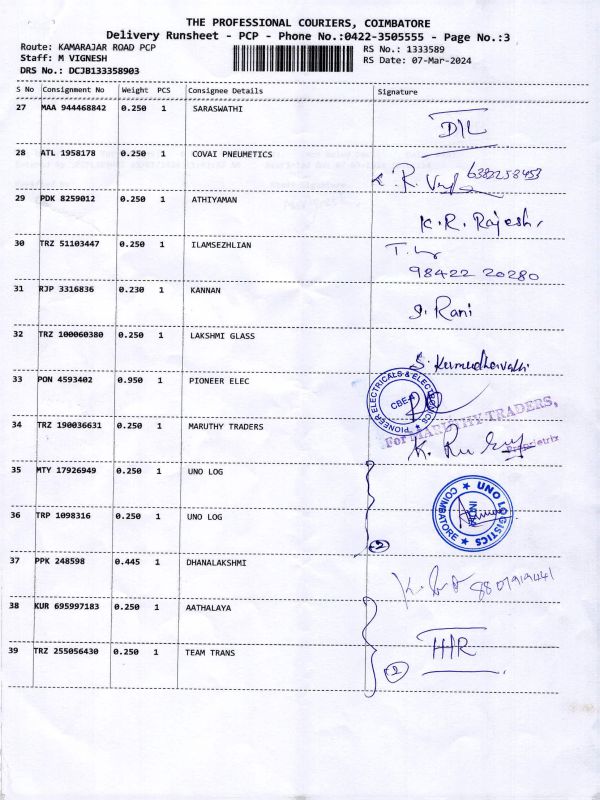 THE PROFESSIONAL COURIERS, COIMBATORE
Delivery Runsheet - PCP - Phone No.:0422-3505555 - Page No.:3
Route: KAMARAJAR ROAD PCP RS No.: 1333589
Staff: M VIGNESH RS Date: 07-Mar-2024
DRS No.: DCJB133358903
S No Consignment No Weight PCS Consignee Details Signature
27 MAA 944468842 0.250 1 SARASWATHI
D/L
28 ATL 1958178 0.250 1 COVAI PNEUMETICS
R. 6382258453
29 PDK 8259012 0.250 1 ATHIYAMAN
K. R. Rajesh
30 TRZ 51103447 0.250 1 ILAMSEZHLIAN
98422 20280
31 RJP 3316836 0.230 1 KANNAN
Rani
32 TRZ 100060380 0.250 1 LAKSHMI GLASS
S. Kumudhavalli
33 PON 4593402 0.950 1 PIONEER ELEC
PIONEER ELECTRICALS & ELECTRONICS
CBE-1
34 TRZ 190036631 0.250 1 MARUTHY TRADERS
For MARUTHY TRADERS,
Proprietrix
35 MTY 17926949 0.250 1 UNO LOG
UNO LOGISTICS COIMBATORE
36 TRP 1098316 0.250 1 UNO LOG
2
37 PPK 248598 0.445 1 DHANALAKSHMI
38 KUR 695997183 0.250 1 AATHALAYA
39 TRZ 255056430 0.250 1 TEAM TRANS
2